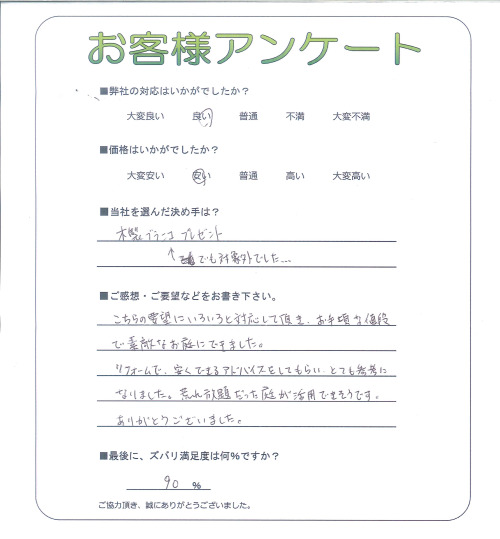 お客様アンケート
■弊社の対応はいかがでしたか?
大変良い 良い 普通 不満 大変不満
■価格はいかがでしたか?
大変安い 安い 普通 高い 大変高い
■当社を選んだ決め手は?
木製ブランコ プレゼント
↑ でも対象外でした...
■ご感想・ご要望などをお書き下さい。
こちらの要望にいろいろと対応して頂き、お手頃な値段
で素敵なお庭にできました。
リフォームで、安くできるアドバイスをしてもらい、とても参考に
なりました。荒れ放題だった庭が活用できそうです。
ありがとうございました。
■最後に、ズバリ満足度は何%ですか?
90 %
ご協力頂き、誠にありがとうございました。